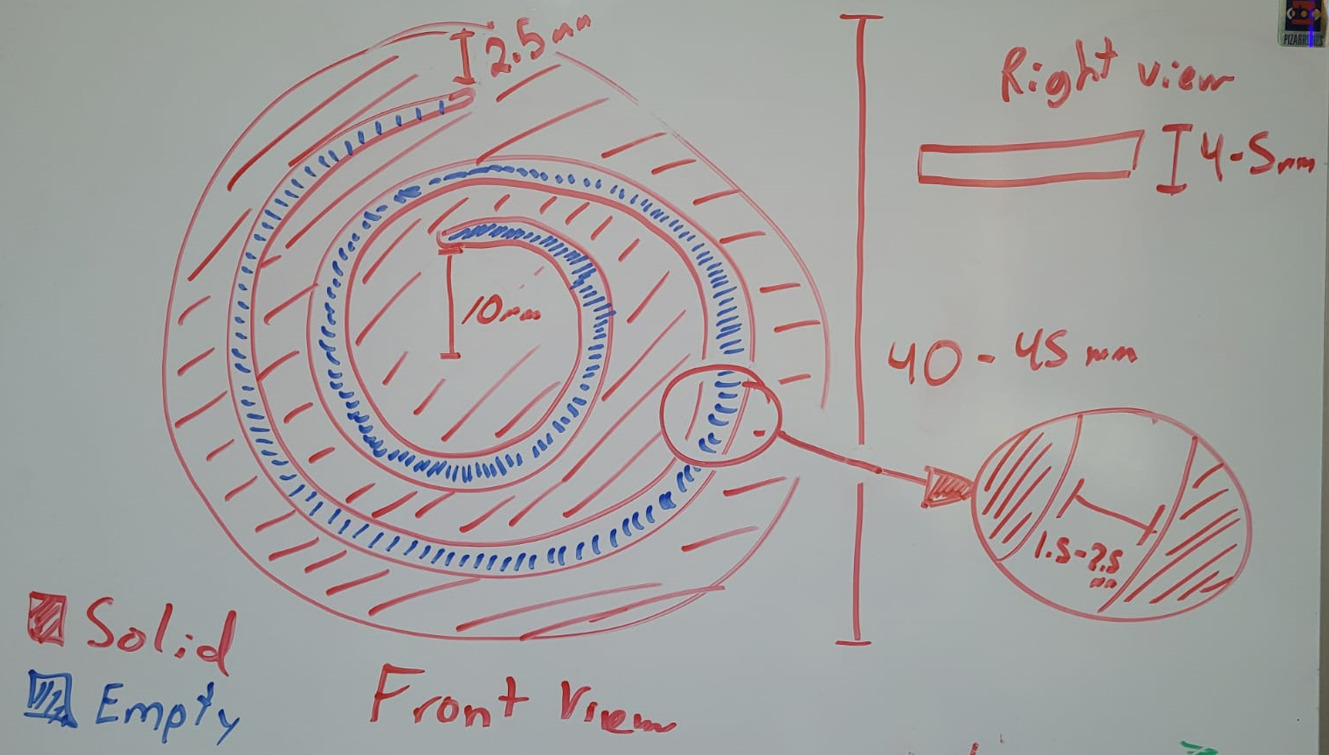 2.5mm
Right view
4-5mm
10mm
40-45 mm
1.5-2.5
mm
Solid
Empty
Front View